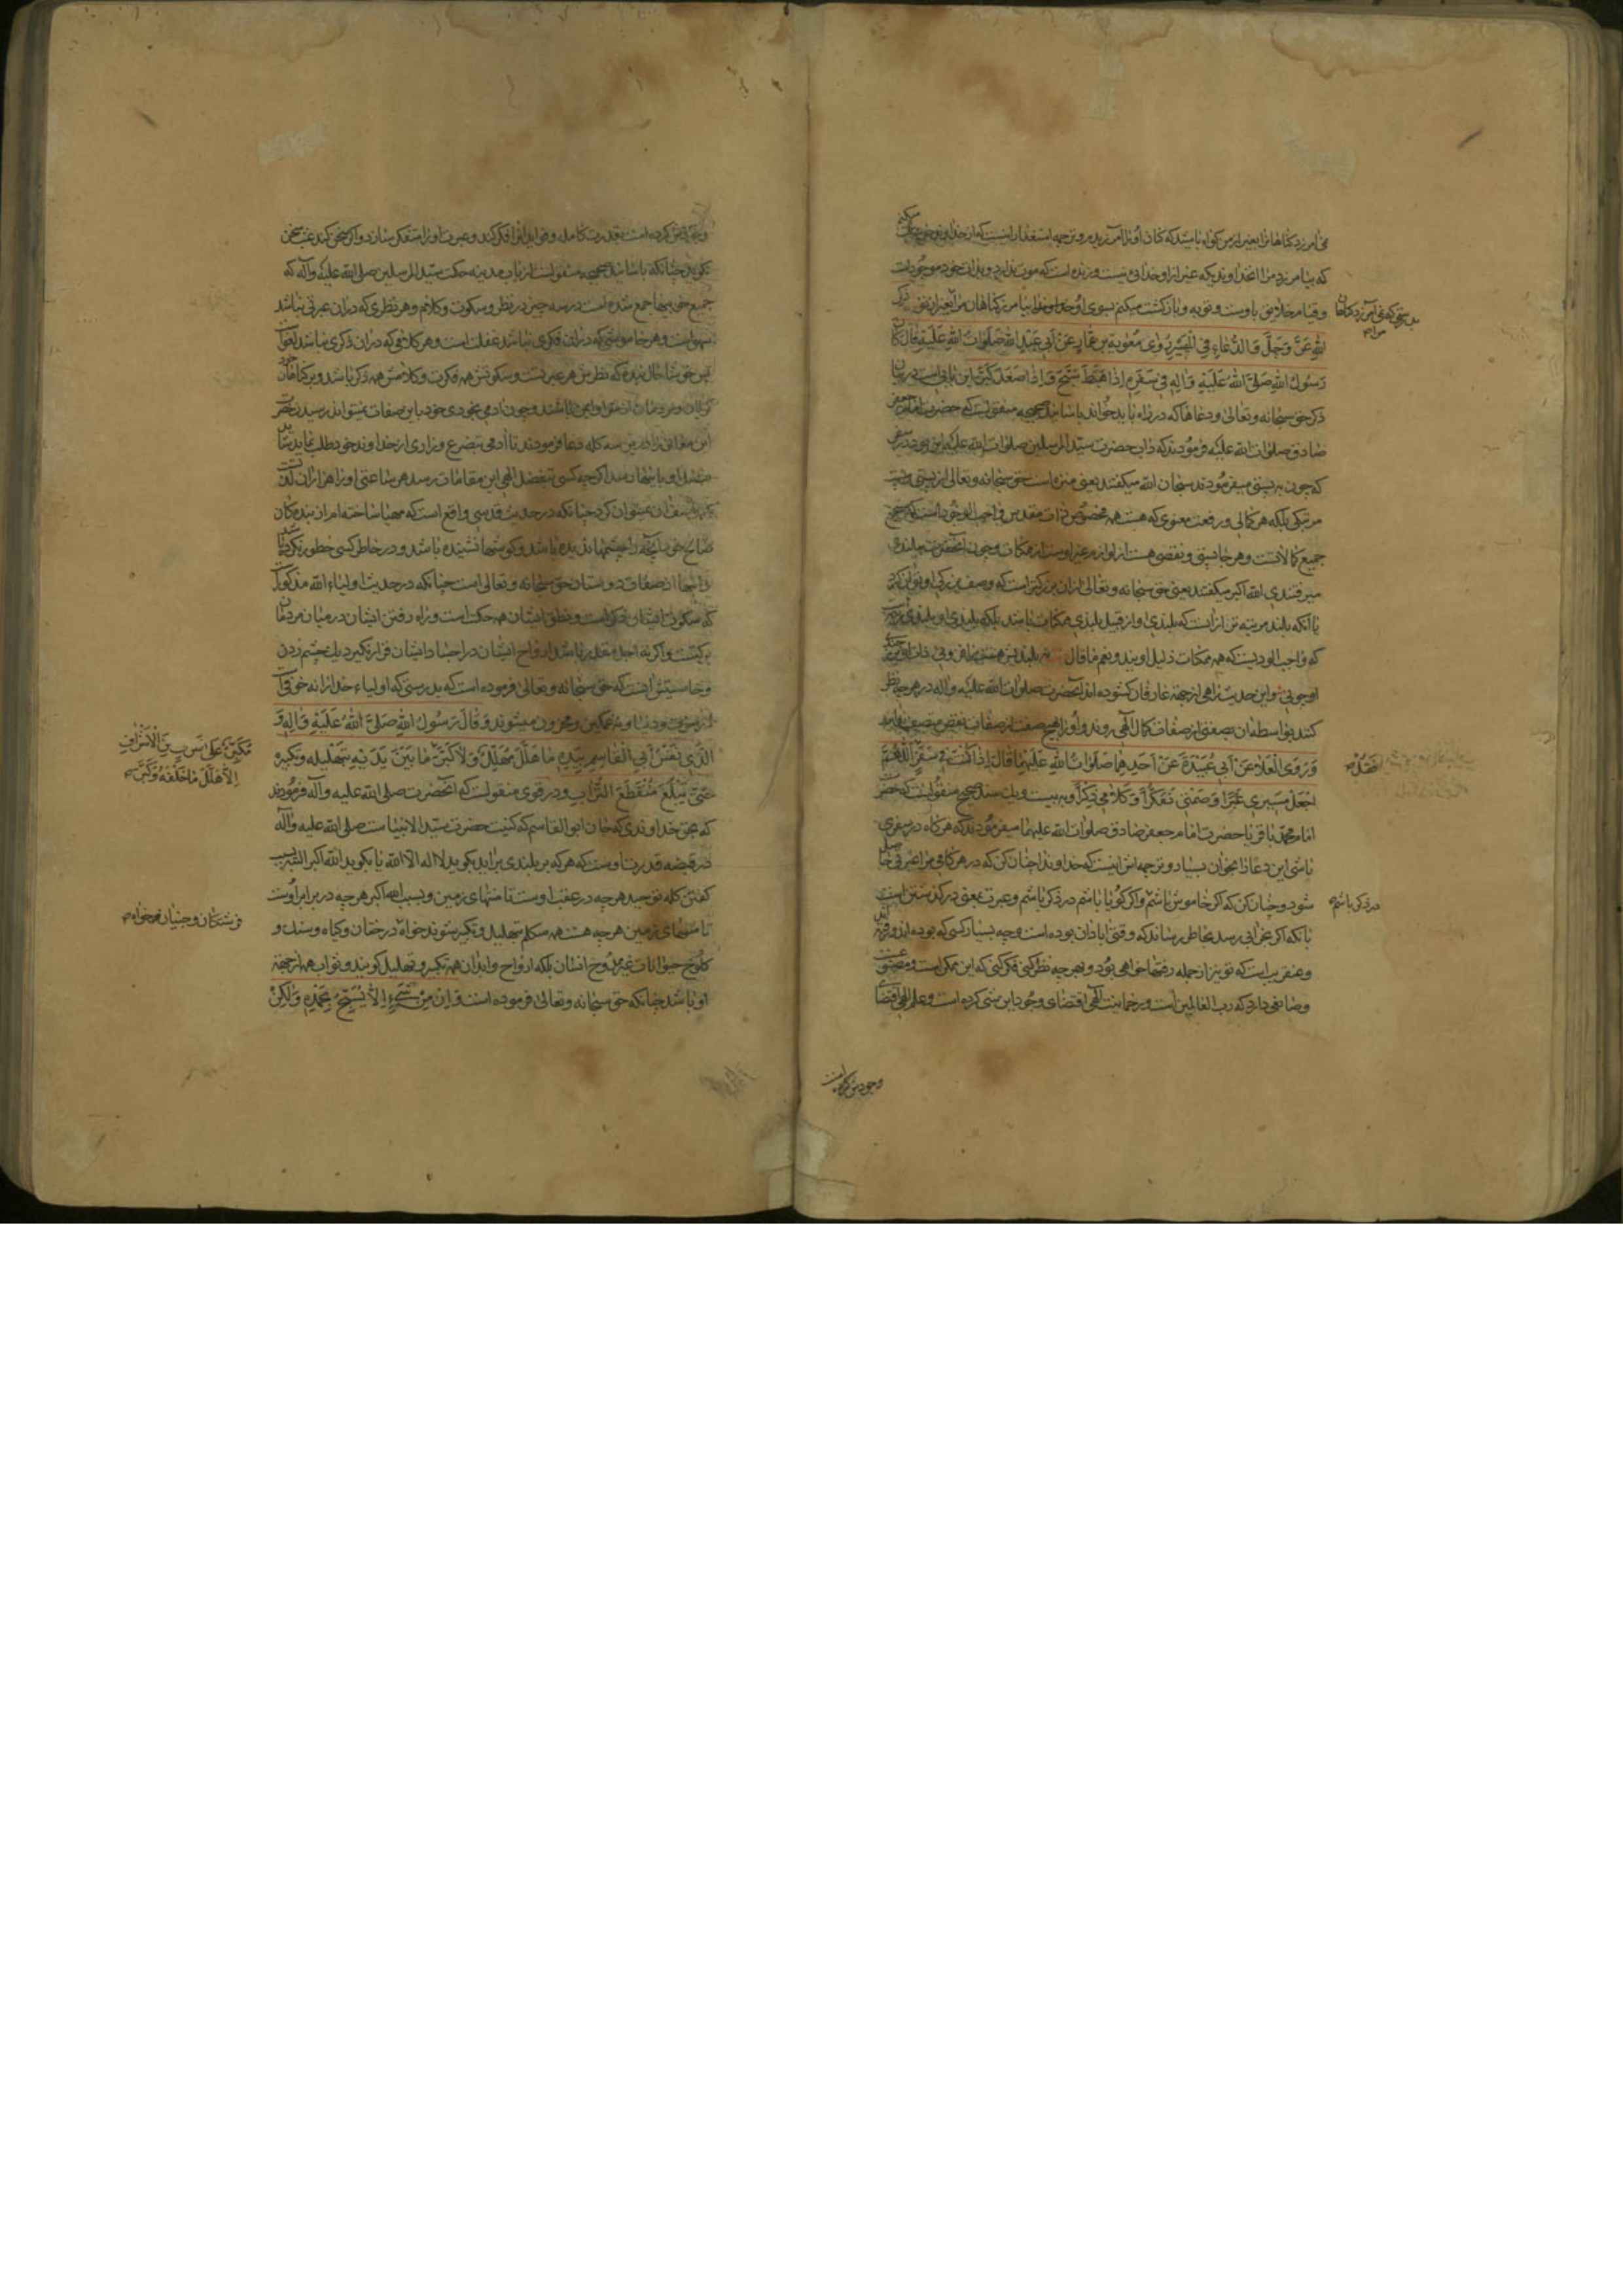 که بیامرزد مرا انخداوندیکه غیر از او خدائی نیست و زنده است که موت ندارد و بذات خود موجودات
و قیام خلایق باوست و توبه و بازکشت میکنم بسوی او
الله عَزَّ وَجَلَّ وَ الدُّعَاءِ فِي الْمَسِيرِ رَوٰی مُعٰوِیَة بن عَمّارٍ عَنْ اَبی عَبْدِ اللهِ صَلَوٰاتُ اللهِ عَلَیْهِ قٰالَ کٰانَ
رَسُولُ اللهِ صَلَّی اللهُ عَلَیْهِ وَ اٰلِهِ فِی سَفَرِهِ اِذٰا هَبَطَ سَبَّحَ وَ اِذٰا صَعَدَ کَبَّرَ این بابی است در بیان
ذکر حق سبحانه و تعالی و دعاها که در راه باید خواند باسانید صحیحه منقولست که حضرت امام جعفر
صادق صلوات الله علیه فرمودند که داب حضرت سید المرسلین صلوات الله علیه این بود در سفر
که چون به پستی میفرمودند سبحان الله میکفتند یعنی منزه است حق سبحانه و تعالی از پستی
مرتبکی بلکه هر کمالی و رفعت معنوی که هست همه مخصوص ذات مقدس واجب الوجود است که مستجمع
جمیع کمالاتست و هر جا پستی و نقصی هست از لوازم غیر اوست از ممکنات و چون آنحضرت ببلندی
میرفتندی الله اکبر میکفتند یعنی حق سبحانه و تعالی از ان بزرکتر است که وصف بزرکی او توان کرد
یا آنکه بلند مرتبه تر از انست که بلندی او از قبیل بلندی ممکنات باشد بلکه بلندی او
که واجب الوجودیست که همه ممکنات ذلیل اویند و نعم ما قال
او جوئی و این حدیث راهی از جهة عارفان کشوده اند آنحضرت صلوات الله علیه و اله در هر چه نظر
کنند بواسطه ان بصفتی از صفات کمال آلهی روند و او را بهیچ صفت از صفات نقص متصف ندانند
وَ رَوَی الْعَلٰاءُ عَنْ اَبی عُبَیْدَةَ عَنْ اَحَدِهِمٰا صَلَوٰاتُ اللهِ عَلَیْهِمٰا قٰالَ اِذٰا کُنْتَ فِی سَفَرٍ اَللّٰهُمَّ
اجْعَلْ مَسِیری عَبَراً وَ صَمْتی تَفَکُّراً وَ کَلٰامی ذِکْراً و به بیست و یک سند صحیح منقولست که حضرت
امام محمد باقر یا حضرت امام جعفر صادق صلوات الله علیهما میفرمودند که هرکاه در سفری
باشی این دعا را بخوان بسیار و ترجمه اش اینست که خداوندا چنان کن که در هر کامی مرا عبرتی حاصل
شود و چنان کن که اکر خاموش باشم و اکر کویا باشم در ذکر باشم و عبرت یعنی درکذشتن است
بانکه اکر بخرابی رسد بخاطر رساند که وقتی ابادان بوده است و چه بسیار کسی که بوده اند و رفته اند
و عنقریب است که تو نیز از جمله رفتها خواهی بود و بهر چه نظر کنی فکر کنی که این ممکن است و مصنوع است
و صانعی دارد که رب العالمین است و رحمانیت آلهی اقتضای وجود این شی کرده است و علم آلهی اقتضای
وجودش کرده است
بدرستی که نمی آمرزد کناهان
مرا ص
در ذکر باشم ص
نکوید چنانکه باسانید صحیحه منقولست از باب مدینه حکمت سید المرسلین صلی الله علیه و آله که
جمیع خوبیها جمع شده است در سه چیز در نظر و سکوت و کلام و هر نظری که در ان عبرتی نباشد
سهو است و هر خاموشی که در ان فکری نباشد غفلت است و هر کلامی که در ان ذکری نباشد لغو است
پس خوشا حال بنده که نظرش همه عبرتست و سکوتش همه فکرت و کلامش همه ذکر باشد و بر کناهان خود
کریان و مردمان از شر او ایمن باشند و چون ادمی بخودی خود باین صفات نمیتواند رسید حضرت
این معانی را در ضمن سه کلمه دعا فرمودند تا ادمی بتضرع و زاری از خداوند خود طلب نماید تا
بفضل او باینها رسد اکرچه کسی بتفضل آلهی این مقامات رسد هر ساعتی او را هزاران لذت
که وصف ان نمیتوان کرد چنانکه در حدیث قدسی واقع است که مهیا ساخته ام از بندهکان
صالح خود آنچه را چشمها ندیده باشد و کوشها نشنیده باشد و در خاطر کسی خطور نکرده باشد
و اینها از صفات دوستان حق سبحانه و تعالی است چنانکه در حدیث اولیاء الله مذکور است
که سکوت ایشان فکر است و نطق ایشان همه حکمت است و راه رفتن ایشان در میان مردمان
برکتست و اکر نه اجل مقدر باشد ارواح ایشان در اجساد ایشان قرار نکیرد یک چشم زدن
و خاصیتش اینست که حق سبحانه و تعالی فرموده است که بدرستی که اولیاء خدا را نه خوفی است
و نه غمکین و محزون میشوند وَ قٰالَ رَسُولُ اللهِ صَلَّی اللهُ عَلَیْهِ وَ اٰلِهِ وَ
الَّذی نَفْسُ اَبی الْقٰاسِمِ بِیَدِهِ مٰا هَلَّلَ مُهَلِّلٌ وَ لٰا کَبَّرَ مٰا بَیْنَ یَدَیْهِ بِتَهْلیلِهِ وَ تَکْبیرِهِ
حَتّیٰ یَبْلُغَ مُنْقَطَعَ التُّرٰابِ و در قوی منقولست که آنحضرت صلی الله علیه و آله فرمودند
که بحق خداوندی که جان ابو القاسم که کنیت حضرت سید الانبیاست صلی الله علیه و آله
در قبضه قدرت اوست که هر که بر بلندی براید بکوید لا اله الا الله یا بکوید الله اکبر البته بسبب
کفتن کلمه توحید هر چه در عقب اوست تا منتهای زمین و بسبب الله اکبر هر چه در برابر اوست
تا منتهای زمین هر چه هست همه متکلم بتهلیل و تکبیر شوند خواه درختان و کیاه و سنک و
کلوخ حیوانات غیر ذوح انسان بلکه ارواح و ابدان همه تکبیر و تهلیل کویند و ثواب همه از جهة
او باشد چنانکه حق سبحانه و تعالی فرموده است وَ اِنْ مِنْ شَیْءٍ اِلّٰا یُسَبِّحُ بِحَمْدِهِ وَ لٰکِنْ
مُکَبِّرٌ عَلیٰ شَرَفٍ مِنَ الْاَشْرٰافِ
اِلّٰا هَلَّلَ مٰا خَلْفَهُ وَ کَبَّرَ ص
فرشتکان و جنیان و خواه ص